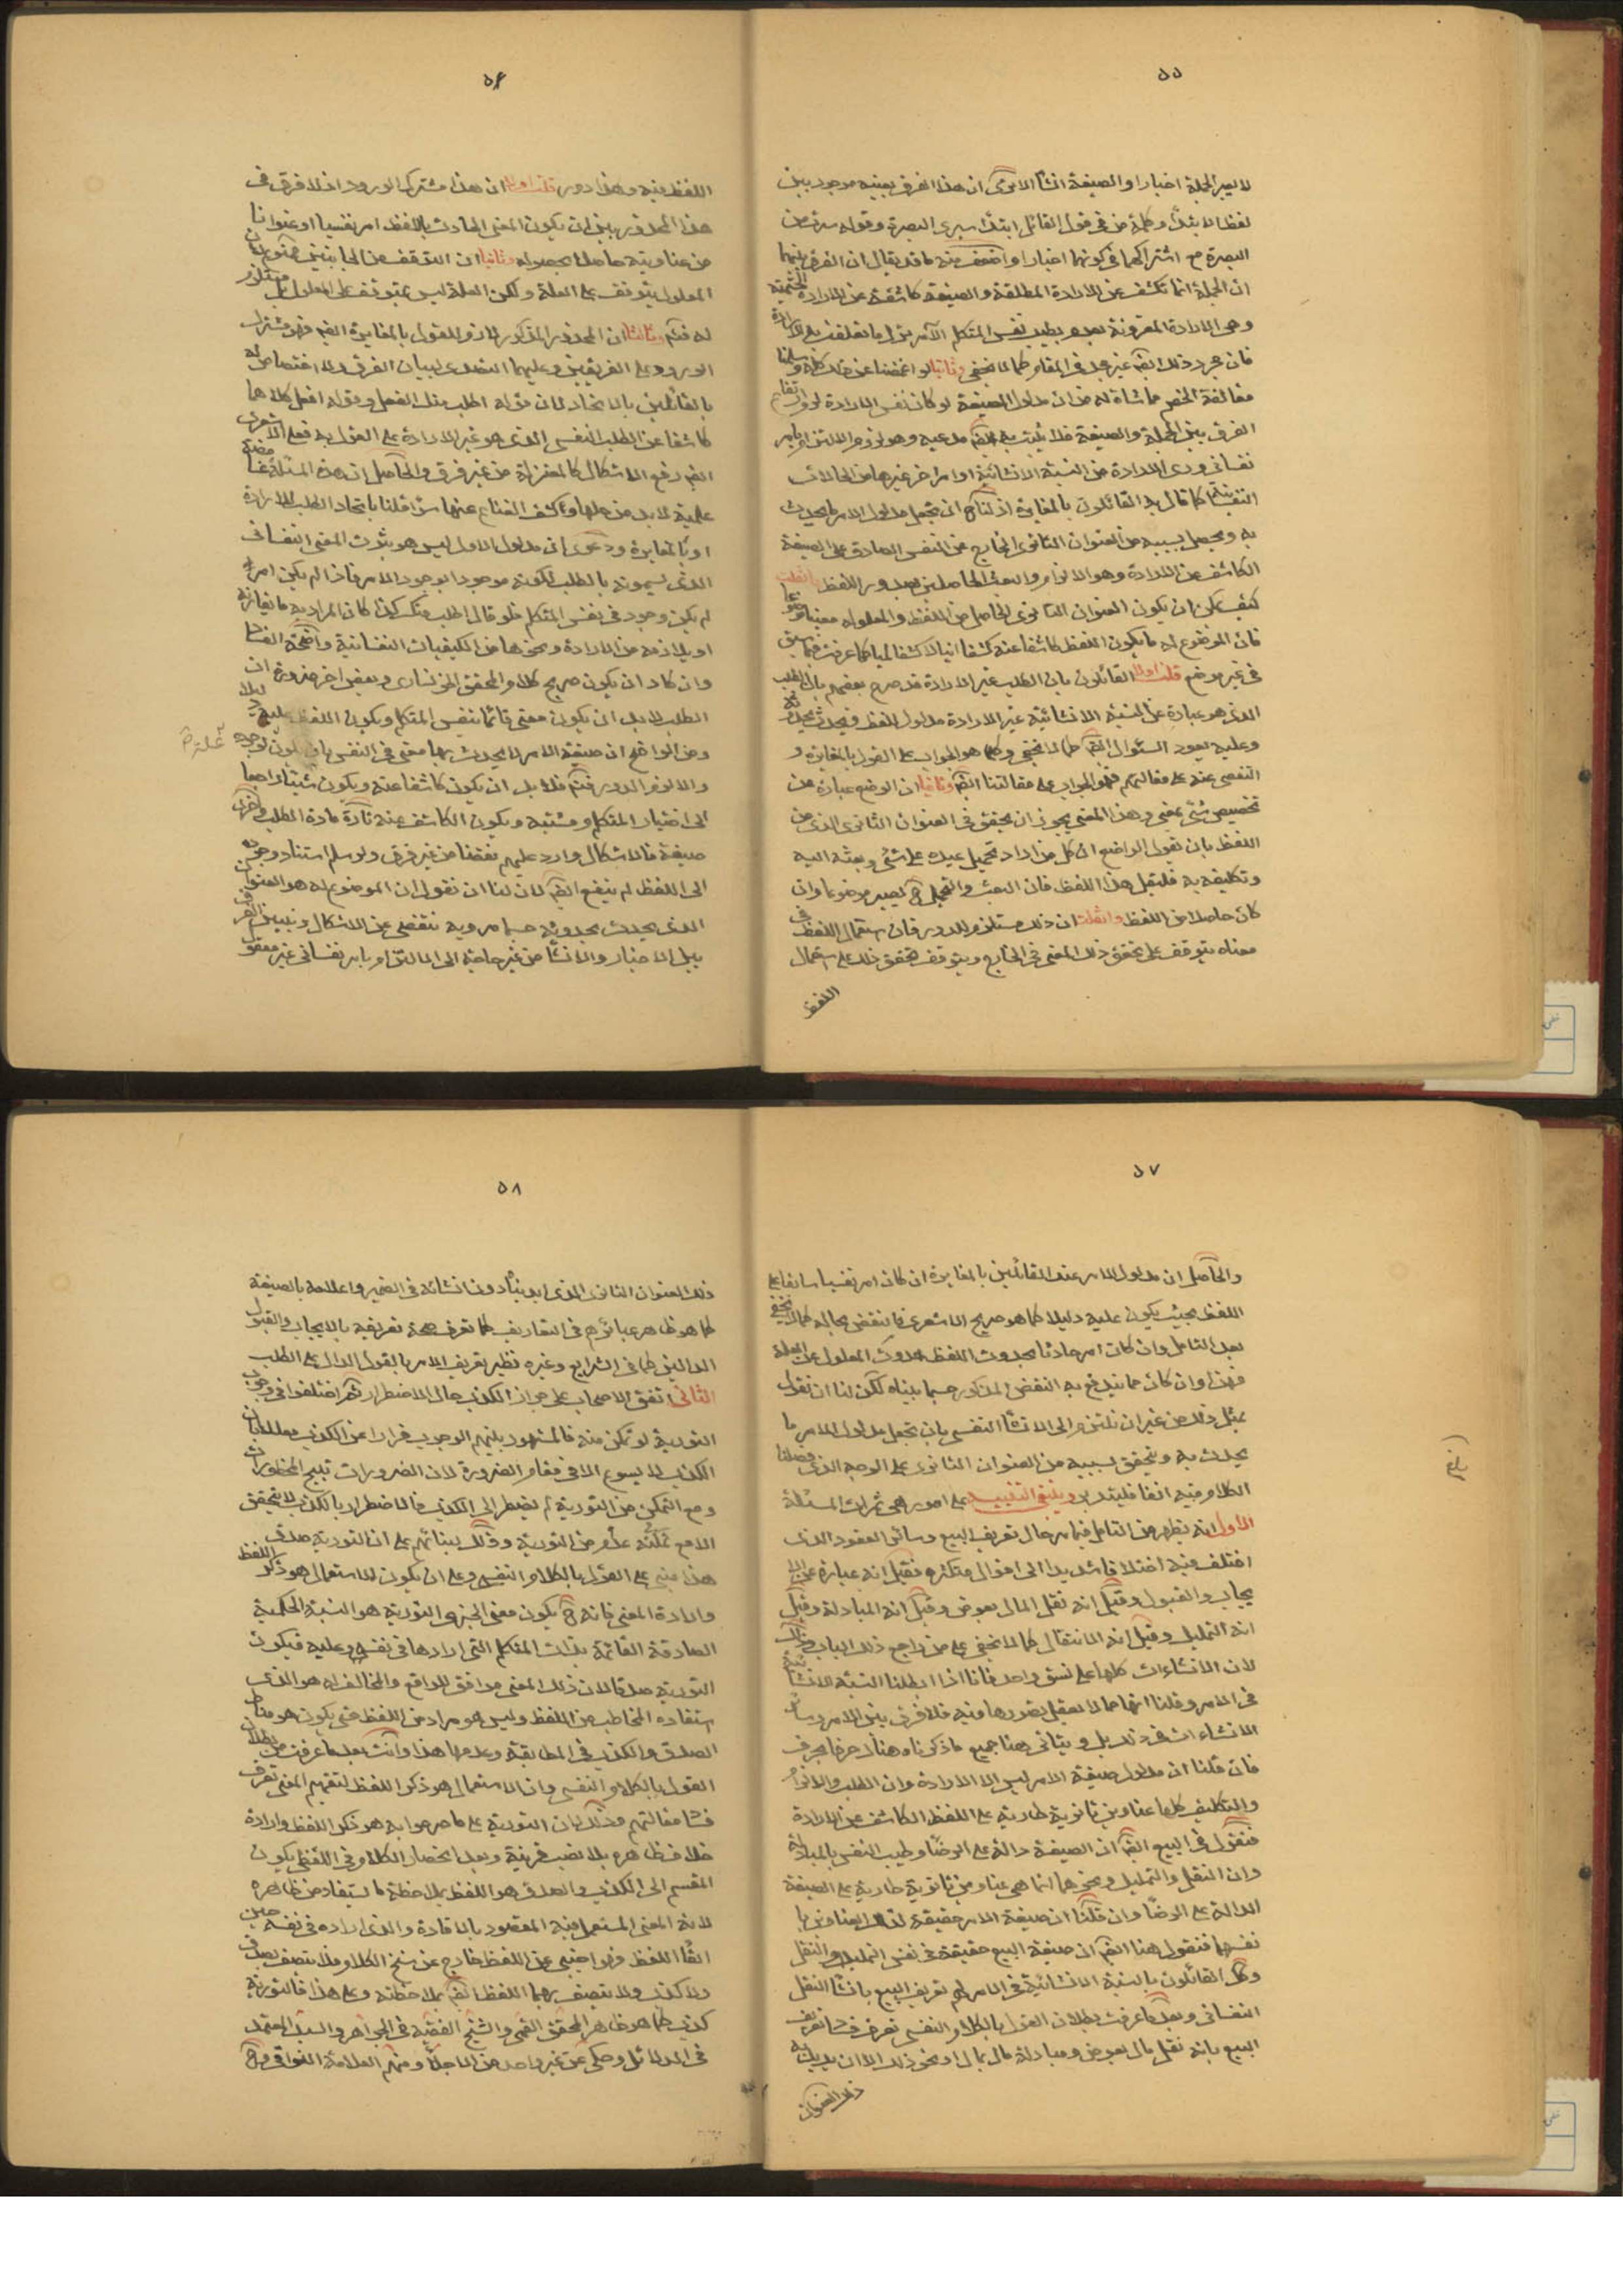 ٥٥
لا يصير الجملة اخبارا او الصيغة انشاء الا ترى ان هذا الفرق بعينه موجود بين
لفظ الابتداء وكلمة من فى قول القائل ابتداء سيرى البصرة وقوله سرت من
البصرة مع اشتراكهما فى كونهما اخبارا واضعف منه ما قد يقال ان الفرق بينهما
ان الجملة انما تكشف عن الارادة المطلقة والصيغة كاشفة عن الارادة
وهى الارادة المقرونة بعدم بطيب نفس المتكلم الآمر بترك ما تعلقت به الارادة
فان مجرد ذلك ايضا غير مجد فى المقام كما لا يخفى وثانيا لو اغمضنا عن ذلك كله وسلمنا
مقالة الخصم مماشاة له من ان مدلول الصيغة لو كان نفس الارادة لزم ارتفاع
الفرق بين الجملة والصيغة فلا يثبت به ايضا مدعيه وهو لزوم الالتزام بامر
نفسانى ورى الارادة من النسبة الانشائية او امر اخر غيرها من الحالات
النفسانية كما قال به القائلون بالمغايرة اذ لنا ح ان نجعل مدلول الامر ما يحدث
به ويحصل بسببه من العنوان الثانوى الخارج عن النفس الصادق على الصيغة
الكاشف عن الارادة وهو الالزام والبعث الحاصلين بصدور اللفظ فان قلت
كيف يمكن ان يكون العنوان الثانوى الحاصل من اللفظ والمعلول له معنيا
فان الموضوع له ما يكون اللفظ كاشفا عنه كشفا انيا لا كشفا لميا كما عرفت فيما سبق
فى غير موضع قلت اولا القائلون بان الطلب غير الارادة قد صرح بعضهم بان الطلب
الذى هو عبارة عن النسبة الانشائية غير الارادة مدلول للفظ ويحدث بحدوثه
وعليه يعود السئوال ايضا كما لا يخفى وكلما هو الجواب على القول بالمغايرة و
التفصى عنه على مقالتهم فهو الجواب على مقالتنا ايضا وثانيا ان الوضع عبارة عن
تخصيص شئ بمعنى وهذا المعنى يجوز ان يتحقق فى العنوان الثانوى الذى من
اللفظ بان نقول الواضع ان كل من اراد تحميل عبده على شئ وبعثه اليه
وتكليفه به فليقل هذا اللفظ فان البعث والتحميل ح يصير موضوعا وان
كان حاصلا من اللفظ وان قلت ان ذلك مستلزم للدور فان استعمال اللفظ فى
معناه يتوقف على تحقق ذلك المعنى فى الخارج ويتوقف تحقق ذلك على استعمال
اللفظ
٥٦
اللفظ فيه وهذا دور قلت اولا ان هذا مشترك الورود اذ لا فرق فى
هذا المحذور بين ان يكون المعنى الحادث باللفظ امر نفسيا او عنوانا
من عناوينه حاصلا بحصوله وثانيا ان التوقف من الجانبين ممنوع لان
المعلول يتوقف على العلة ولكن العلة ليس بمتوقف على المعلول بل مستلزم
له فتم وثالثا ان المحذور المذكور لازم للقول بالمغايرة ايضا فهو مشترك
الورود على الفريقين وعليهما التصدى لبيان الفرق ولا اختصاص له
بالقائلين بالاتحاد لان قوله اطلب منك الفعل وقوله افعل كلاهما
كاشفا عن الطلب النفسى الذى هو غير الارادة على القول به فعلى الاشعرى
ايضا دفع الاشكال كالمعتزلة من غير فرق والحاصل ان هذه المسئلة
علمية لا بد من حلها وكشف القناع عنها سواء قلنا باتحاد الطلب للارادة
او بالمغايرة ودعوى ان مدلول الاول ليس هو ثبوت المعنى النفسانى
الذى يسمونه بالطلب لكونه موجودا بوجود الامر فاذا لم يكن امر
لم يكن وجود فى نفس المتكلم فلو قال اطلب منك كذا كان المراد به ما يقارنه
او يلازمه من الارادة ونحوها من الكيفيات النفسانية واضحة الفساد
وان كاد ان يكون صريح كلام المحقق الخونسارى وبعض اخر ضرورة ان
الطلب لا بد ان يكون معنى قائما بنفس المتكلم ويكون اللفظ دليلا عليه
ومن الواضح ان صيغة الامر لا يحدث بها معنى فى النفس بان يكون لوجوده
علة
والا لزم الدور فتم فلا بد ان يكون كاشفا عنه ويكون شيئا راجعا
الى اختيار المتكلم ومشيته ويكون الكاشف عنه تارة مادة الطلب واخرى
صيغة فالاشكال وارد عليهم نقضا من غير فرق ولو سلم استناد وجوده
الى اللفظ لم ينفع ايضا لان لنا ان نقول ان الموضوع له هو العنوان
الذى يحدث بحدوثه حسبما مر وبه نتفصى عن الاشكال ونبين الفرق
بين الاخبار والانشاء من غير حاجة الى الالتزام بامر نفسانى غير معقول
٥٧
والحاصل ان مدلول الامر عند القائلين بالمغايرة ان كان امر نفسيا سابقا على
اللفظ بحيث يكون عليه دليلا كما هو صريح الاشعرى فالنقض بحاله كما لا يخفى
بعد التامل وان كان امر حادثا بحدوث اللفظ حدوث المعلول عن العلة
فهذا وان كان مما يندفع به النقض المذكور حسبما بيناه لكن لنا ان نقول
بمثل ذلك من غير ان نلتزم الى الانشاء النفسى بان نجعل مدلول الامر ما
يحدث به ويتحقق بسببه من العنوان الثانوى على الوجه الذى فصلنا
الكلام فيه انفا فليتدبر وينبغى التنبيه على امور هى ثمرات المسئلة
الاول انه يظهر من التامل فيما مر حال تعريف البيع وسائر العقود الذى
اختلف فيه اختلافا شديدا الى اقوال متكثرة فقيل انه عبارة عن الا
يجاب والقبول وقيل انه نقل المال بعوض وقيل انه المبادلة وقيل
انه التمليك وقيل انه الانتقال كما لا يخفى على من راجع ذلك الباب وذلك
لان الانشاءات كلها على نسق واحد فانا اذا ابطلنا النسبة الانشائية
فى الامر وقلنا انها مما لا يعقل تصورها فيه فلا فرق بين الامر وسائر
الانشاءات فى ذلك بل ويتاتى هنا جميع ما ذكرناه هناك حرفا بحرف
فان قلنا ان مدلول صيغة الامر ليس الا الارادة وان الطلب والالزام
والتكليف كلها عناوين ثانوية طارية على اللفظ الكاشف عن الارادة
فنقول فى البيع ايضا ان الصيغة دالة على الرضا وطيب النفس بالمبادلة
وان النقل والتمليك ونحوهما انما هى عناوين ثانوية طارية على الصيغة
الدالة على الرضا وان قلنا ان صيغة الامر حقيقة لتلك العناوين با
نفسها فنقول هنا ايضا ان صيغة البيع حقيقة فى نفس التمليك والنقل
وكل القائلون بالنسبة الانشائية فى الامر لهم تعريف البيع بانشاء النقل
النفسانى وبعد ما عرفت بطلان القول بالكلام النفسى تعرف فساد تعريف
البيع بانه نقل مال بعوض ومبادلة مال بمال او نحو ذلك الا ان يريد به
ذلك العنوان
٥٨
ذلك العنوان الثانوى الذى ابدأناه دون انشائه فى الضمير واعلامه بالصيغة
كما هو ظاهر عبائرهم فى التعاريف كما تعرف صحة تعريفه بالايجاب والقبول
الدالين كما فى الشرايع وغيره نظير تعريف الامر بالقول الدال على الطلب
الثانى اتفق الاصحاب على جواز الكذب حال الاضطرار ثم اختلفوا فى وجوب
التورية لو تمكن منه فالمشهور بينهم الوجوب فرارا عن الكذب معللا بان
الكذب لا يسوغ الا فى مقام الضرورة لان الضرورات تبيح المحظورات
ومع التمكن من التورية لم يضطر الى الكذب فالاضطرار بالكذب لا يتحقق
الا مع تمكنه عدم من التورية وذلك لبنائهم على ان التورية صدق
هذا مبنى على القول بالكلام النفسى وعلى ان يكون الاستعمال هو ذكر اللفظ
وارادة المعنى فانه ح يكون معنى الخبرى التورية هو النسبة الحكمية
الصادقة القائمة بذات المتكلم التى ارادها فى نفسه وعليه فيكون
التورية صدقا لان ذلك المعنى موافق للواقع والمخالف له هو الذى
استفاده المخاطب من اللفظ وليس هو مراد من اللفظ حتى يكون هو مناط
الصدق والكذب فى المطابقة وعدمها هذا وانت بعد ما عرفت من بطلان
القول بالكلام النفسى وان الاستعمال هو ذكر اللفظ لتفهيم المعنى تعرف
فساد مقالتهم وذلك لان التورية على ما صرحوا به هو ذكر اللفظ وارادة
خلاف ظاهره بلا نصب قرينة وبعد انحصار الكلام فى اللفظى يكون
المقسم الى الكذب والصدق هو اللفظ بملاحظة ما يستفاد من ظاهره
لانه المعنى المستعمل فيه المقصود بالافادة والذى اراده فى نفسه حين
القاء اللفظ فهو اجنبى عن اللفظ خارج عن سنخ الكلام فلا يتصف بصدق
ولا كذب ولا يتصف بهما اللفظ ايضا بملاحظته وعلى هذا فالتورية
كذب كما هو ظاهر المحقق القمى والشيخ الفقيه فى الجواهر والسيد المعتمد
فى الدلائل وحكى عن غير واحد من الاجلاء ومنهم العلامة النراقى وح